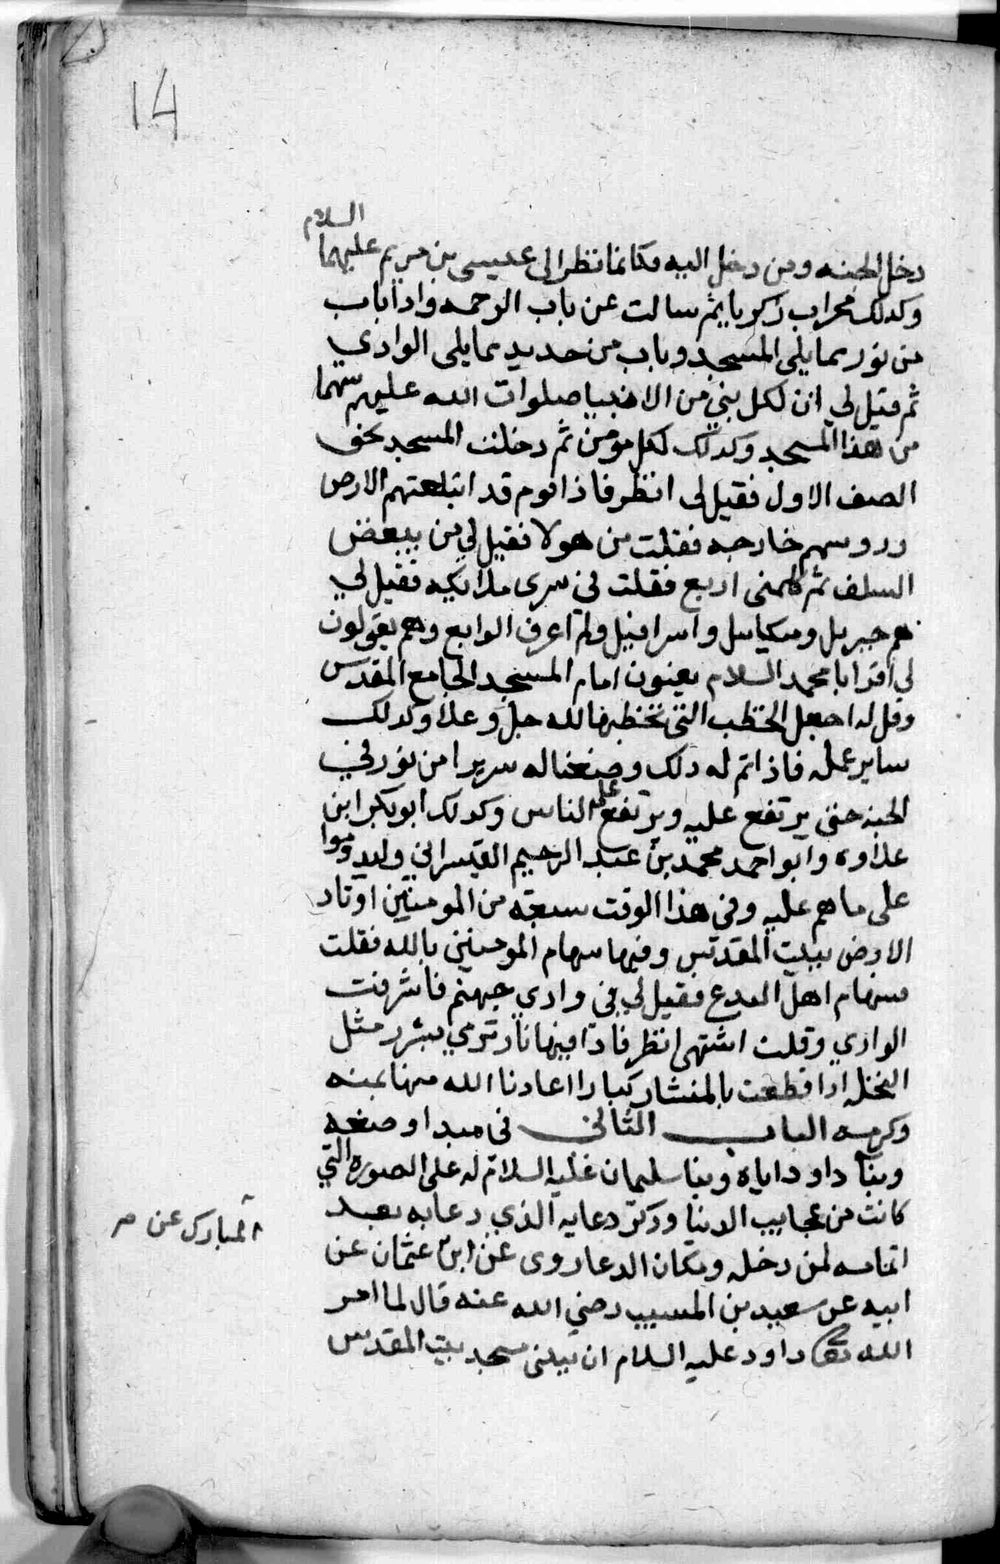 14
السلام
دخل الجنه ومن دخل اليه فكانما نظر الى عيسى بن مريم عليهما
وكدلك محراب زكريا ثم سالت عن باب الرحمه وادا باب
من نور مما يلي المسجد وباب من حديد مما يلى الوادي
ثم قيل لي ان لكل نبي من الانبيا صلوات الله عليهم سهما
من هذا المسجد وكدلك لكل مومن ثم دخلت المسجد نحو
الصف الاول فقيل لى انظر فاذا قوم قد ابتلعتهم الارض
وروسهم خارجه فقلت من هولا فقيل لي من يبغض
السلف ثم كلمنى اربع فقلت فى سرى ملايكه فقيل لي
هم جبريل وميكاييل واسرافيل ولم اعرف الرابع وهم يقولون
لي اقرا ابا محمد السلام يعنون امام المسجد الجامع المقدس
وقل له اجعل الخطب التى تخطبها لله جل وعلا وكدلك
ساير عمله فاذا تم له دلك وضعنا له سريرا من نور في
الجنه حتى يرتفع عليه ويرتفع عليه الناس وكدلك ابو بكر ابن
علاوه وابو احمد محمد بن عبد الرحيم القيسراني وليدوموا
على ما هم عليه وفى هذا الوقت سبعة من المومنين اوتاد
الارض ببيت المقدس وفيها سهام المومنين بالله فقلت
فسهام اهل البدع فقيل لي فى وادي جهنم فاشرفت
الوادي وقلت اشتهى انظر فادا فيها نار ترمي بشرر مثل
النخله ادا قطعت بالمنشار كبارا اعادنا الله منها بمنه
وكرمه الباب الثانى فى مبدا وضعه
وبنا داود اياه وبنا سليمان عليه السلام له على الصوره التي
كانت من عجايب الدنيا وذكر دعايه الذي دعا به بعد
اتمامه لمن دخله ومكان الدعا روى عن ابن عثمان عن
المبارك عن
ابيه عن سعيد بن المسيب رضي الله عنه قال لما امر
الله تعالى داود عليه السلام ان يبنى مسجد بيت المقدس